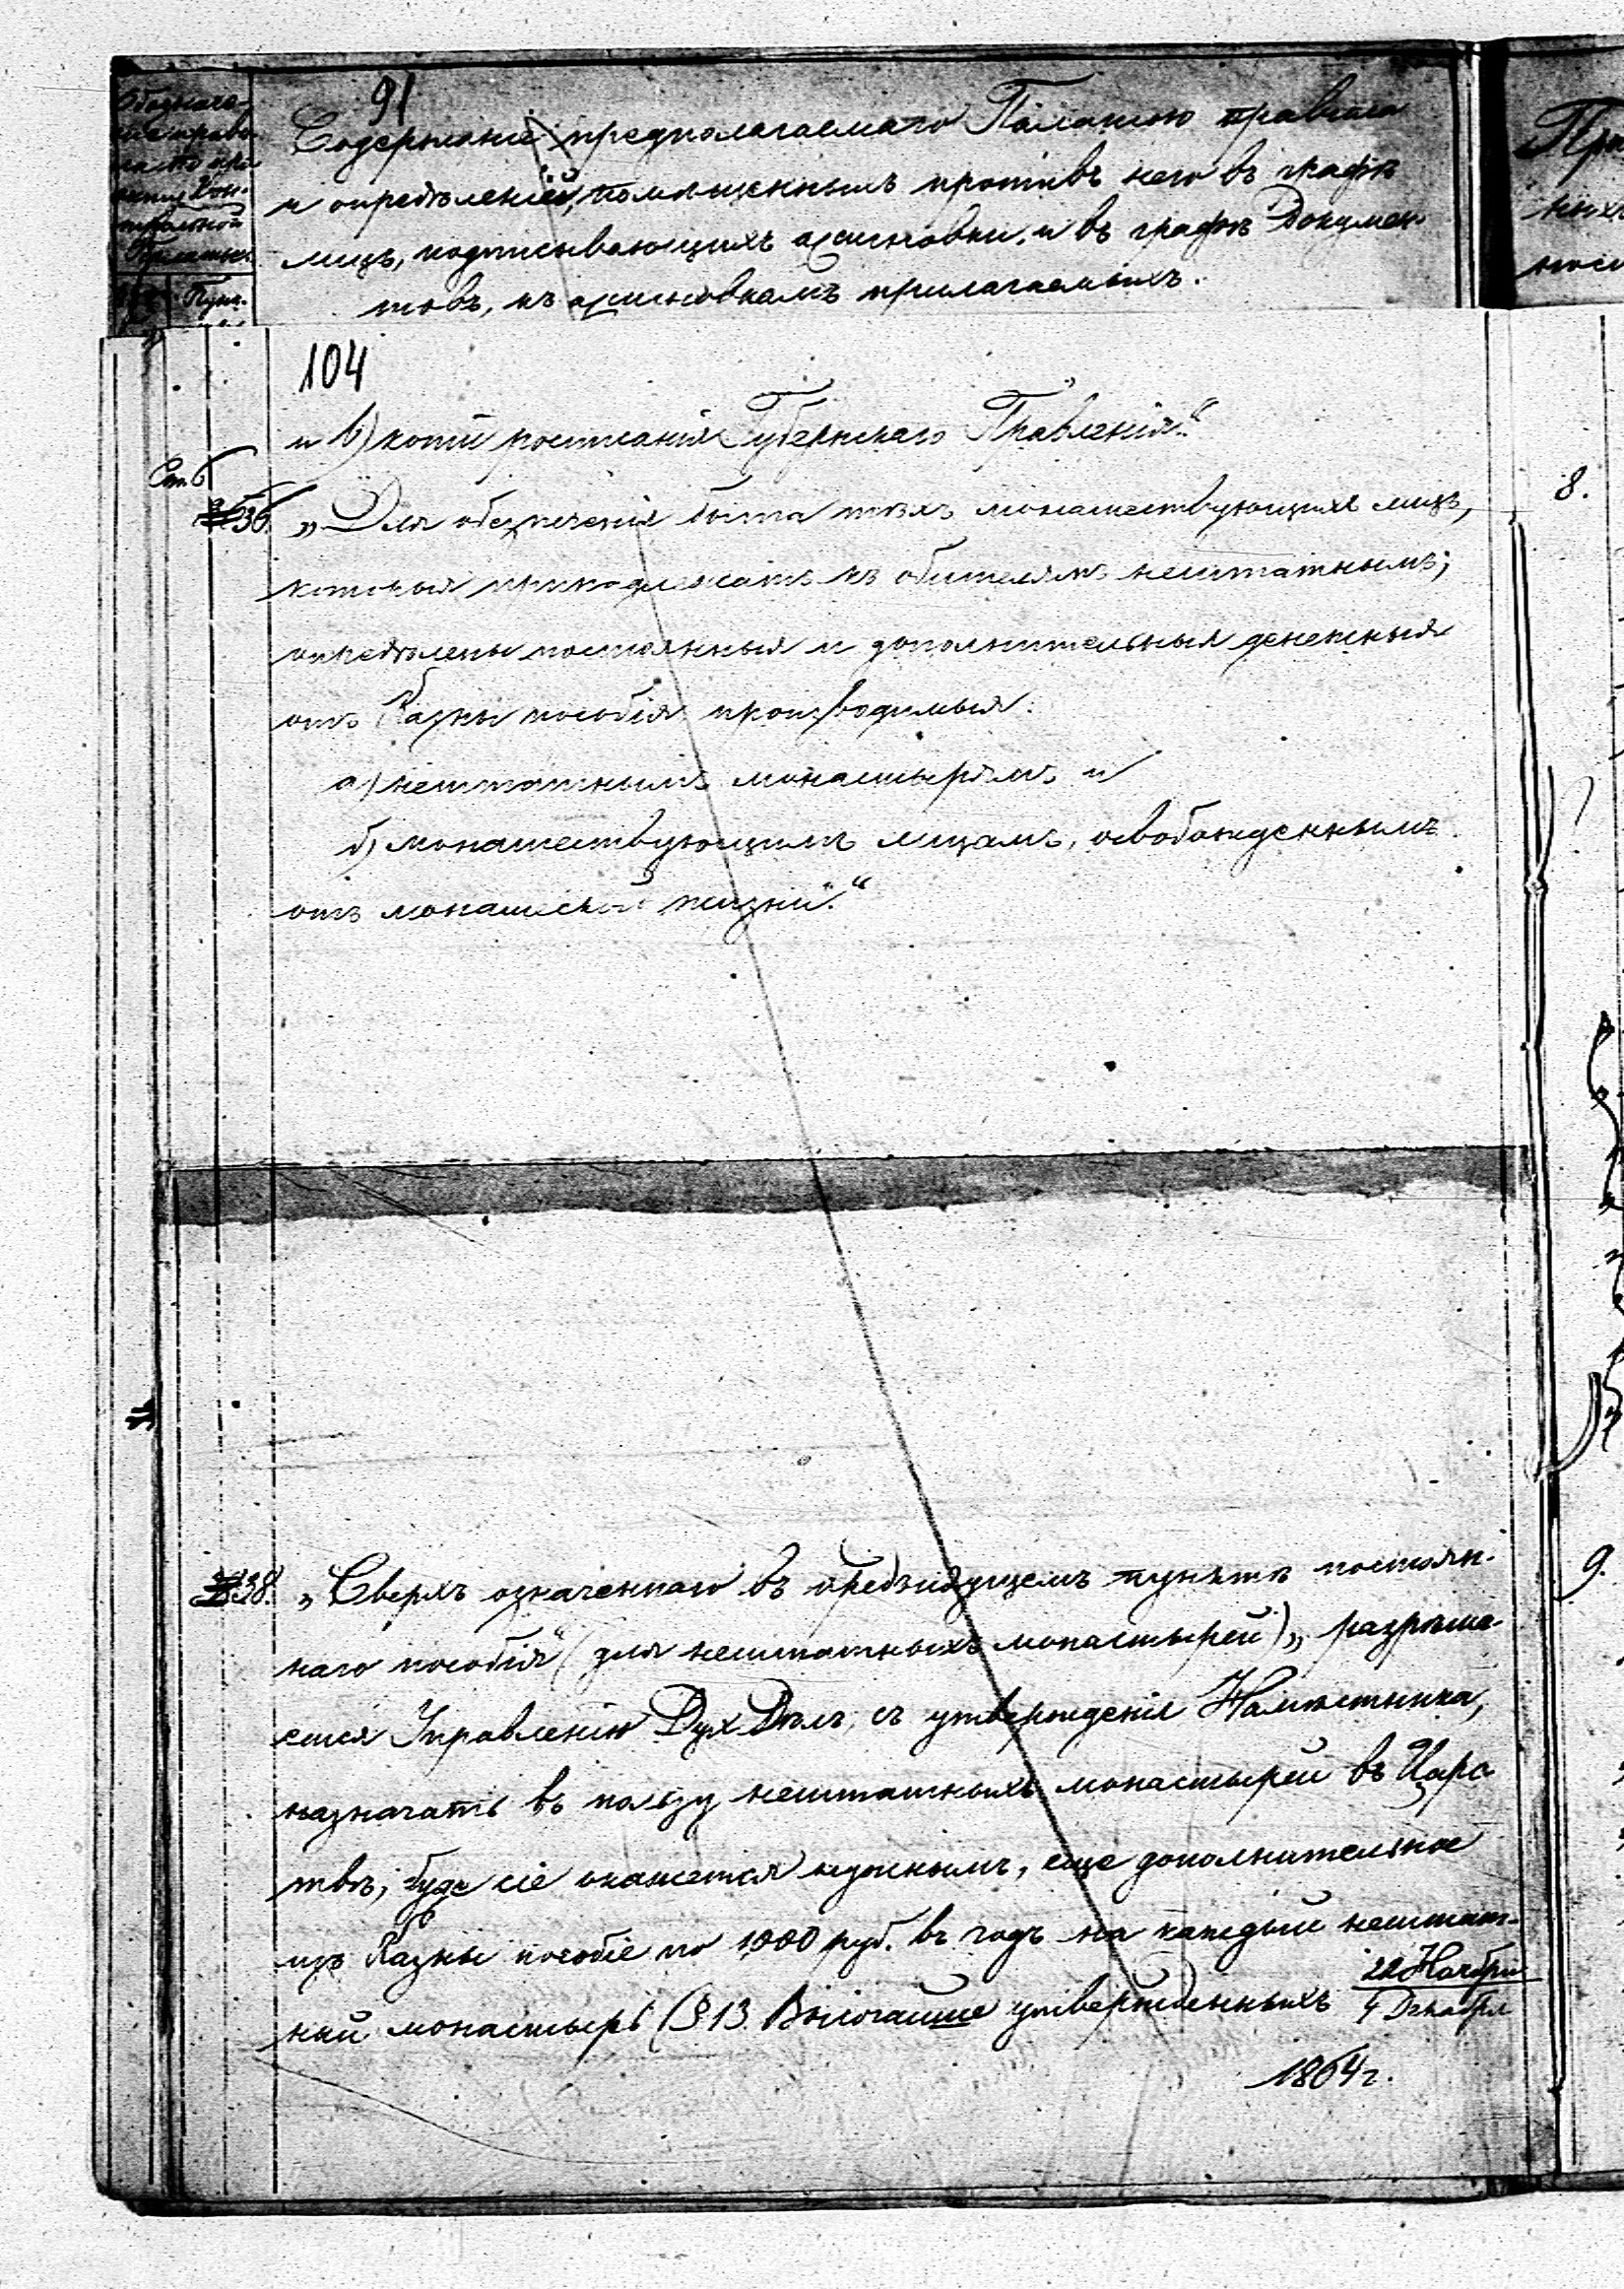 91
Обозначе-
ніе правила
по про-
екту Кон-
трольной
Палаты.
Пунк-
Содержаніе предполагаемаго Палатою правила
и опредѣленій, помѣщенныхъ противъ него въ графѣ
лицъ, подписывающихъ ассигновки, и въ графѣ Докумен-
товъ, къ ассигновкамъ прилагаемыхъ.
104
и в) копіи росписанія Губернскаго Правленія."
Ст. 6
36. „Для обезпеченія быта тѣхъ монашествующихъ лицъ,
которыя принадлежатъ къ обителямъ нештатнымъ;
опредѣлены постоянныя и дополнительныя денежныя
отъ Казны пособія производимыя:
а) нештатнымъ монастырямъ и
б) монашествующимъ лицамъ, освобожденнымъ
отъ монашеской жизни."
8.
38. „Сверхъ означеннаго въ предъидущемъ пунктѣ постоян-
наго пособія" (для нештатныхъ монастырей) „разрѣша-
ется Управленію Дух. Дѣлъ, съ утвержденія Намѣстника,
назначать въ пользу нештатныхъ монастырей въ Царс
твѣ, буде сіе окажется нужнымъ, еще дополнительное
изъ Казны пособіе по 1000 руб. въ годъ на каждый нештат-
ный монастырь (§ 13 Высочайше утвержденныхъ 22 Ноября
4 Декабря
1864 г.
9.